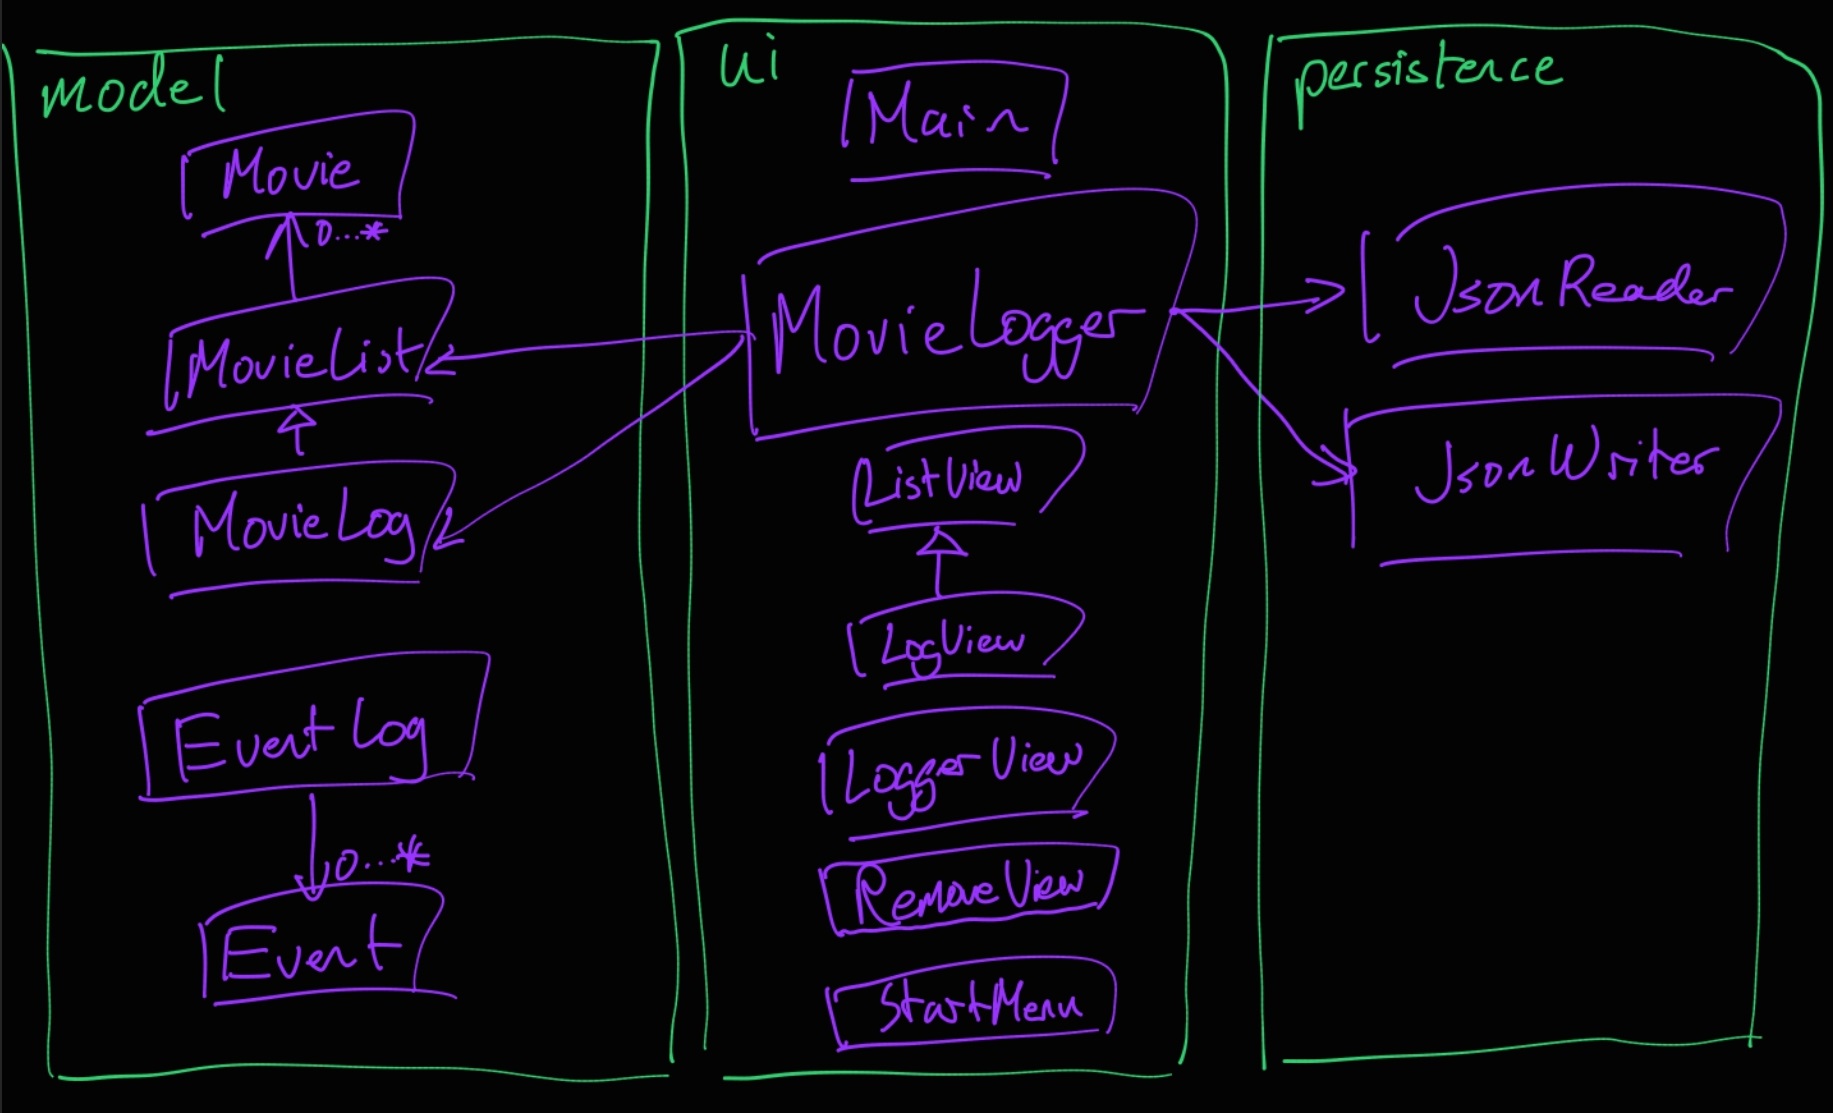 model
Movie
0...*
MovieList
MovieLog
EventLog
0...*
Event
ui
Main
MovieLogger
ListView
LogView
LoggerView
RemoveView
StartMenu
persistence
JsonReader
JsonWriter